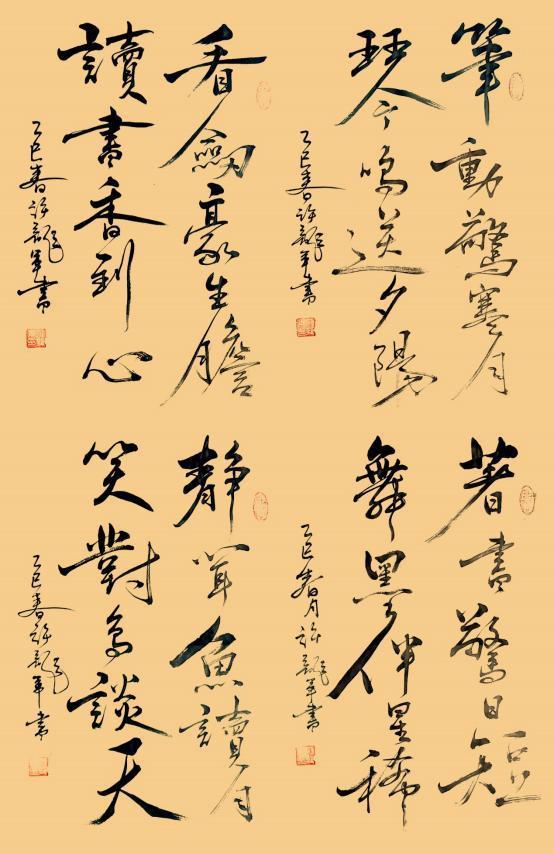 筆動驚寒月
琴鳴送夕陽
乙巳春許書
著書驚日短
舞墨伴星稀
乙巳春月許書
看劍豪生膽
讀書香到心
乙巳春許書
靜聞魚讀月
笑對鳥談天
乙巳春許書